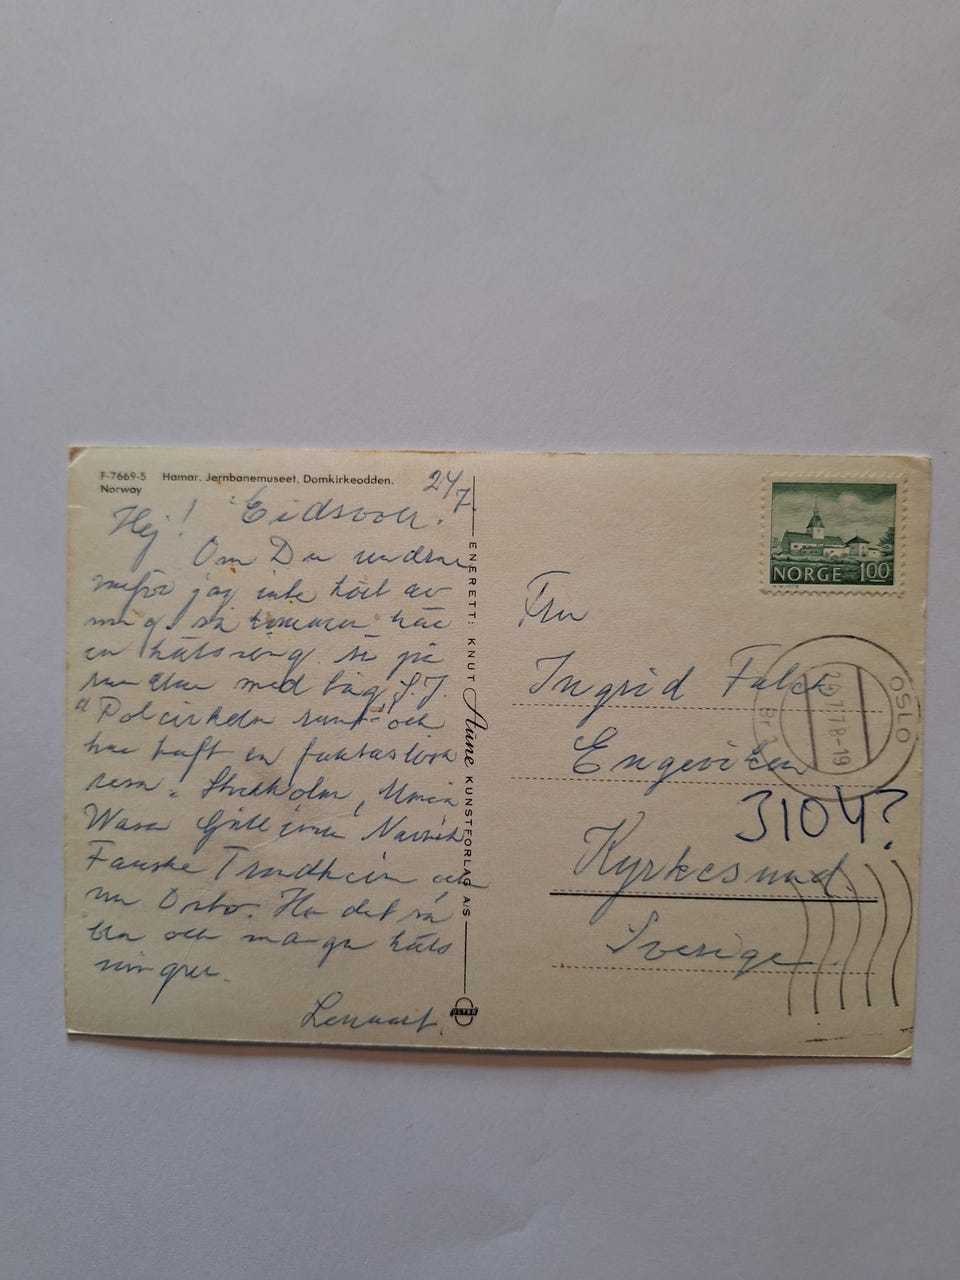 F-7669-5 Hamar. Jernbanemuseet, Domkirkeodden.
Norway
24/7
Hej! Eidsvoll.
Om Du undrar
varför jag inte hört av
mig så kommer här
en hälsning. är på
med tåg S.J.
"Polcirkeln runt" och
har haft en fantastisk
resa. Stockholm,
Wasa Gällivare Narvik
Fauske Trondheim och
nu Oslo. Ha det så
bra och många häls
ningar.
Lennart.
ENERETT: KNUT Aune KUNSTFORLAG A/S
ULTRA
NORGE 1.00
OSLO
Br 1
25.7.78-19
Fru
Ingrid Falck
Engeviken
3104?
Kyrkesund.
Sverige.